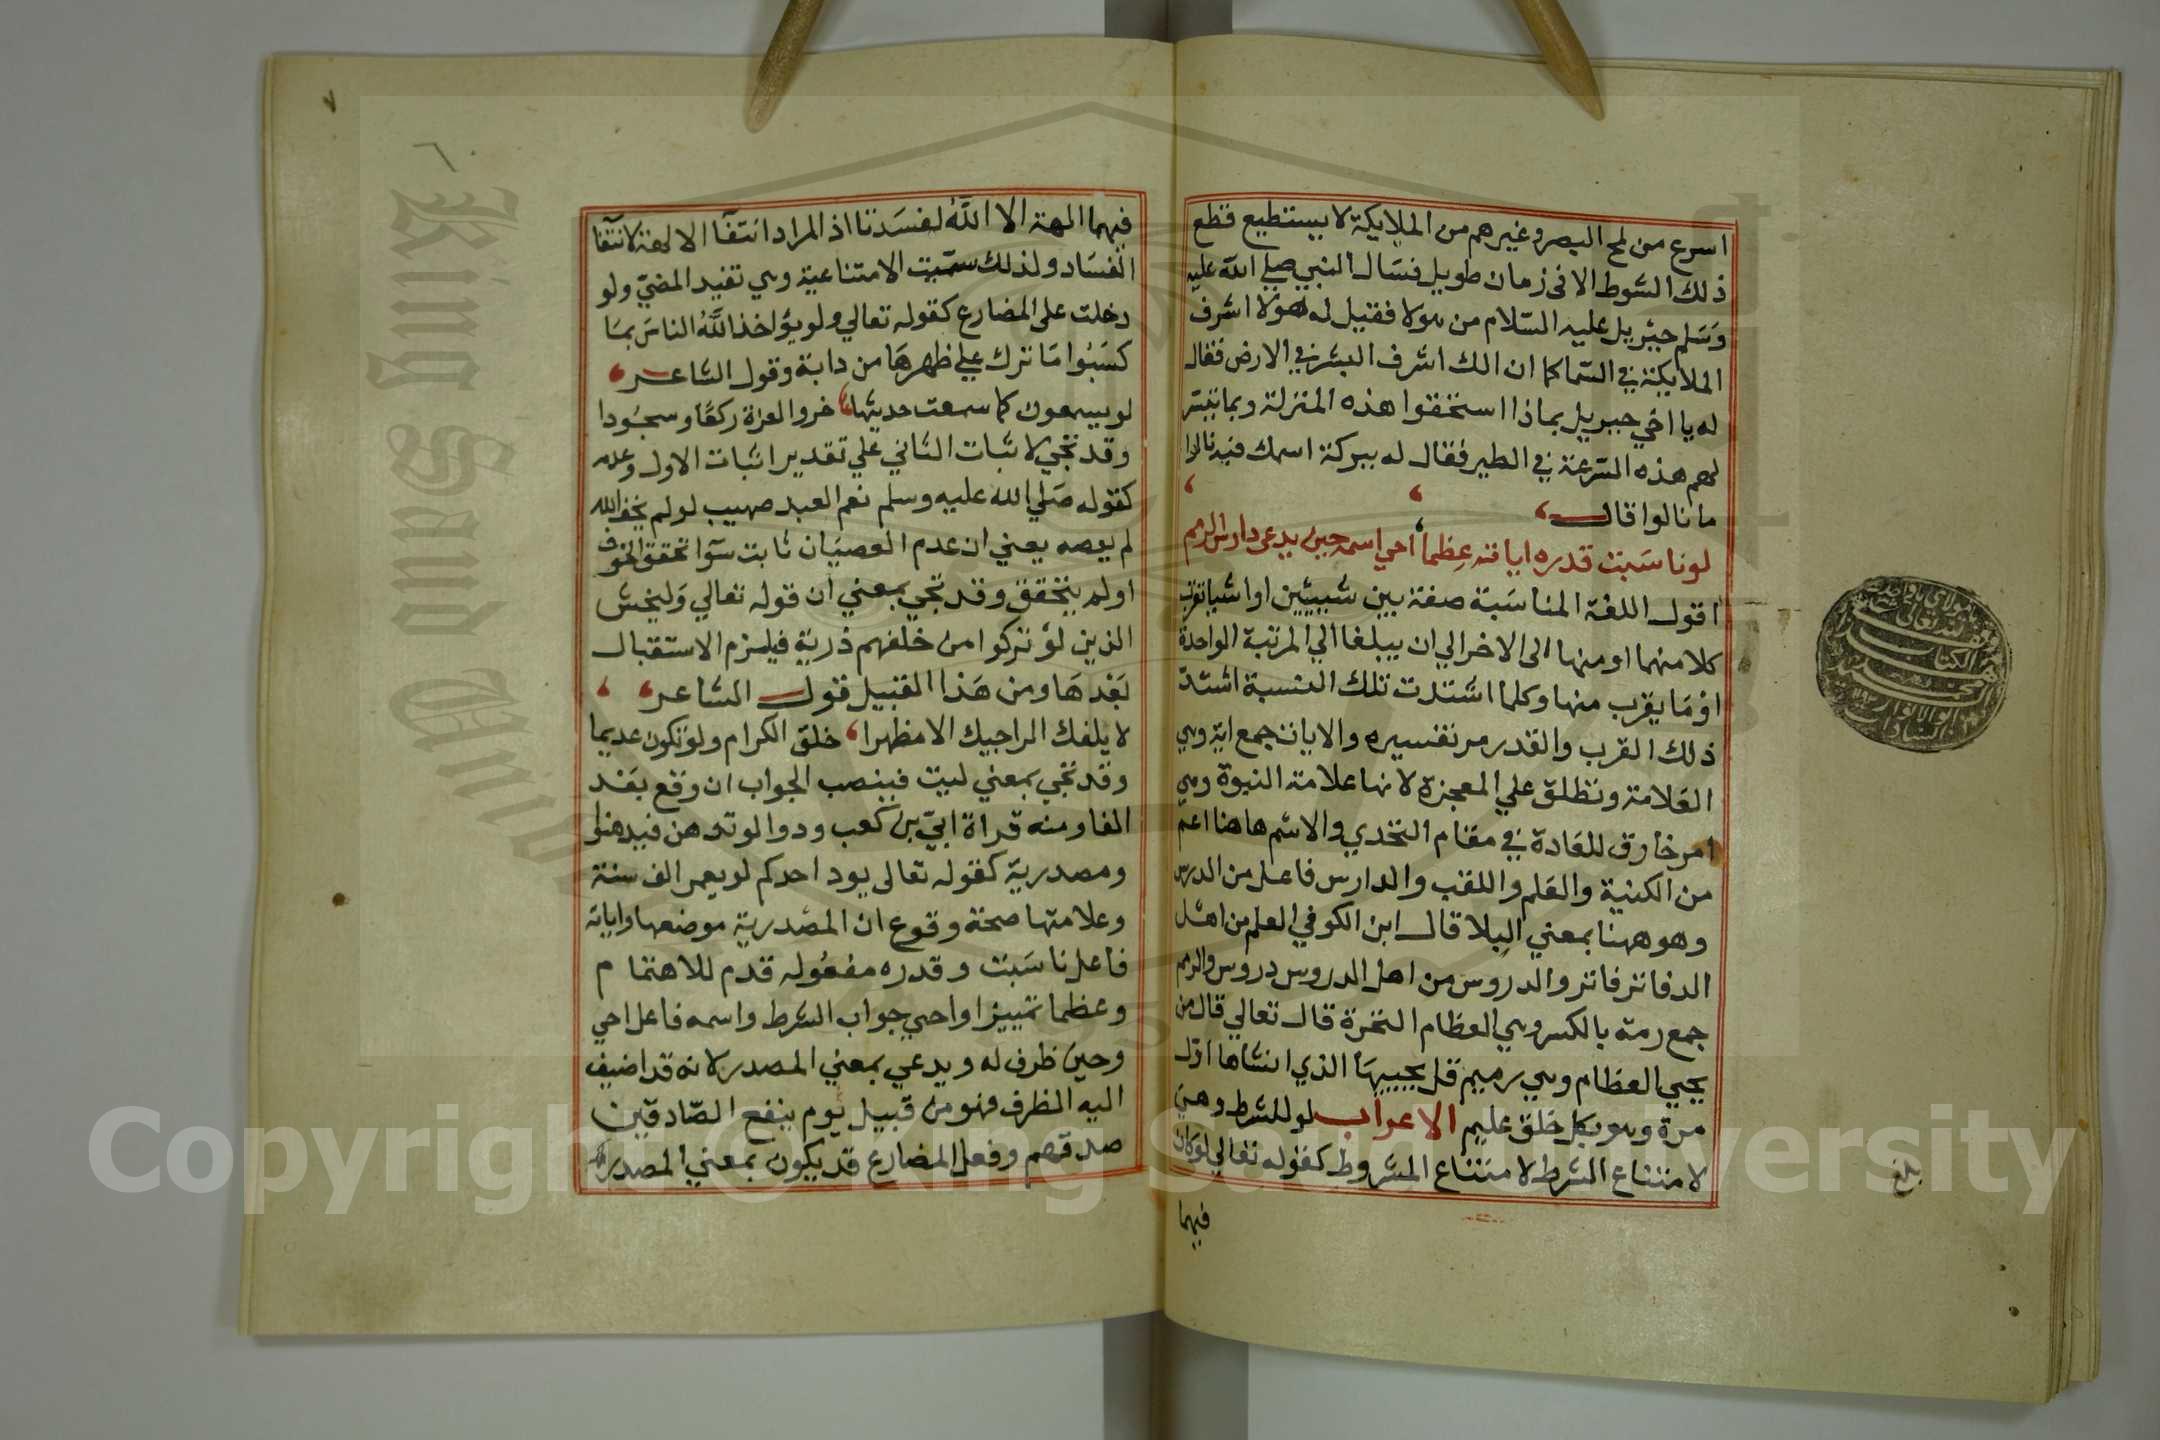 اسرع من لمح البصر وغيرهم من الملايكة لا يستطيع قطع
ذلك الشوط الا فى زمان طويل فسال النبي صلي الله عليه
وسلم جبريل عليه السلام من هولا فقيل له هولا اشرف
الملايكة في السما كما ان الك اشرف البشر في الارض فقال
له يا اخي جبريل بماذا استحقوا هذه المنزلة وبما تيسر
لهم هذه السرعة في الطير فقال له ببركة اسمك فيه نالوا
ما نالوا قال
لو ناسبت قدره اياته عظما احي اسمه حين يدعى دارس الرمم
اقول اللغة المناسبة صفة بين شيئين او اشيا تقرب
كلا منهما او منها الى الاخر الي ان يبلغا الي المرتبة الواحدة
او ما يقرب منها وكلما اشتدت تلك النسبة اشتد
ذلك القرب والقدر مر تفسيره والايات جمع اية وهي
العلامة وتطلق علي المعجزة لانها علامة النبوة وهي
امر خارق للعادة في مقام التحدي والاسم هاهنا اعم
من الكنية والعلم واللقب والدارس فاعل من الدرس
وهو ههنا بمعني البلا قال ابن الكوفي العلم من اهل
الدفاتر فاتر والدروس من اهل الدروس دروس والرمم
جمع رمة بالكسر وهي العظام النخرة قال تعالي قال من
يحيي العظام وهي رميم قل يحييها الذي انشاها اول
مرة وهو بكل خلق عليم الاعراب لو للشرط وهي
لامتناع الشرط لامتناع المشروط كقوله تعالي لو كان
فيهما
بلغ
٧
٦
فيهما الهة الا الله لفسدتا اذ المراد انتفا الالهة لانتفا
الفساد ولذلك سميت الامتناعية وهي تفيد المضي ولو
دخلت على المضارع كقوله تعالي ولو يؤاخذ الله الناس بما
كسبوا ما ترك علي ظهرها من دابة وقول الشاعر
لو يسمعون كما سمعت حديثها خروا لعزة ركعا وسجودا
وقد تجي لاثبات الثاني علي تقدير اثبات الاول وعدمه
كقوله صلي الله عليه وسلم نعم العبد صهيب لو لم يخف الله
لم يعصه يعني ان عدم العصيان ثابت سوا تحقق الخوف
او لم يتحقق وقد تجي بمعني ان قوله تعالي وليخش
الذين لو تركوا من خلفهم ذرية فيلزم الاستقبال
بعدها ومن هذا القبيل قول الشاعر
لا يلفك الراجيك الا مظهرا خلق الكرام ولو تكون عديما
وقد تجي بمعني ليت فينصب الجواب ان وقع بعد
الفا ومنه قراة ابي بن كعب ودوا لو تدهن فيدهنوا
ومصدرية كقوله تعالى يود احدكم لو يعمر الف سنة
وعلامتها صحة وقوع ان المصدرية موضعها واياته
فاعل ناسبت وقدره مفعوله قدم للاهتمام
وعظما تمييز واحي جواب الشرط واسمه فاعل احي
وحين ظرف له ويدعي بمعني المصدر لانه قد اضيف
اليه الظرف فهو من قبيل يوم ينفع الصادقين
صدقهم وفعل المضارع قد يكون بمعني المصدر
King Saud University
Copyright © King Saud University